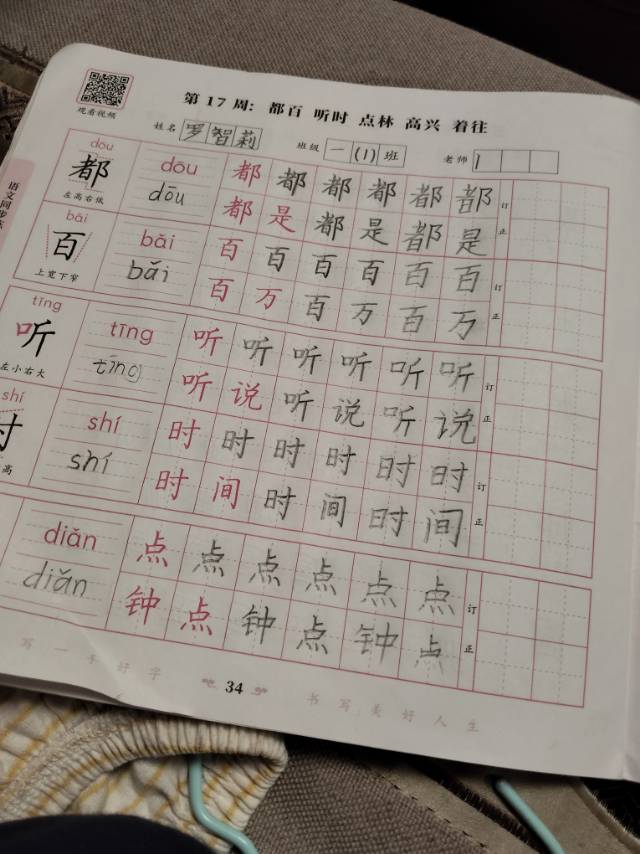 第17周：都百 听时 点林 高兴 着往
观看视频
姓名 罗智莉 班级 一(1)班 老师
语文同步练
dōu dōu 都都都都都都
都 dōu 都是都是都是
左高右低 订正
bǎi bǎi 百百百百百百
百 bǎi 百万百万百万
上宽下窄 订正
tīng tīng 听听听听听听
听 tīng 听说听说听说
左小右大 订正
shí shí 时时时时时时
时 shí 时间时间时间
高 订正
diǎn 点点点点点点
diǎn 钟点钟点钟点
订正
写一手好字 34 书写美好人生